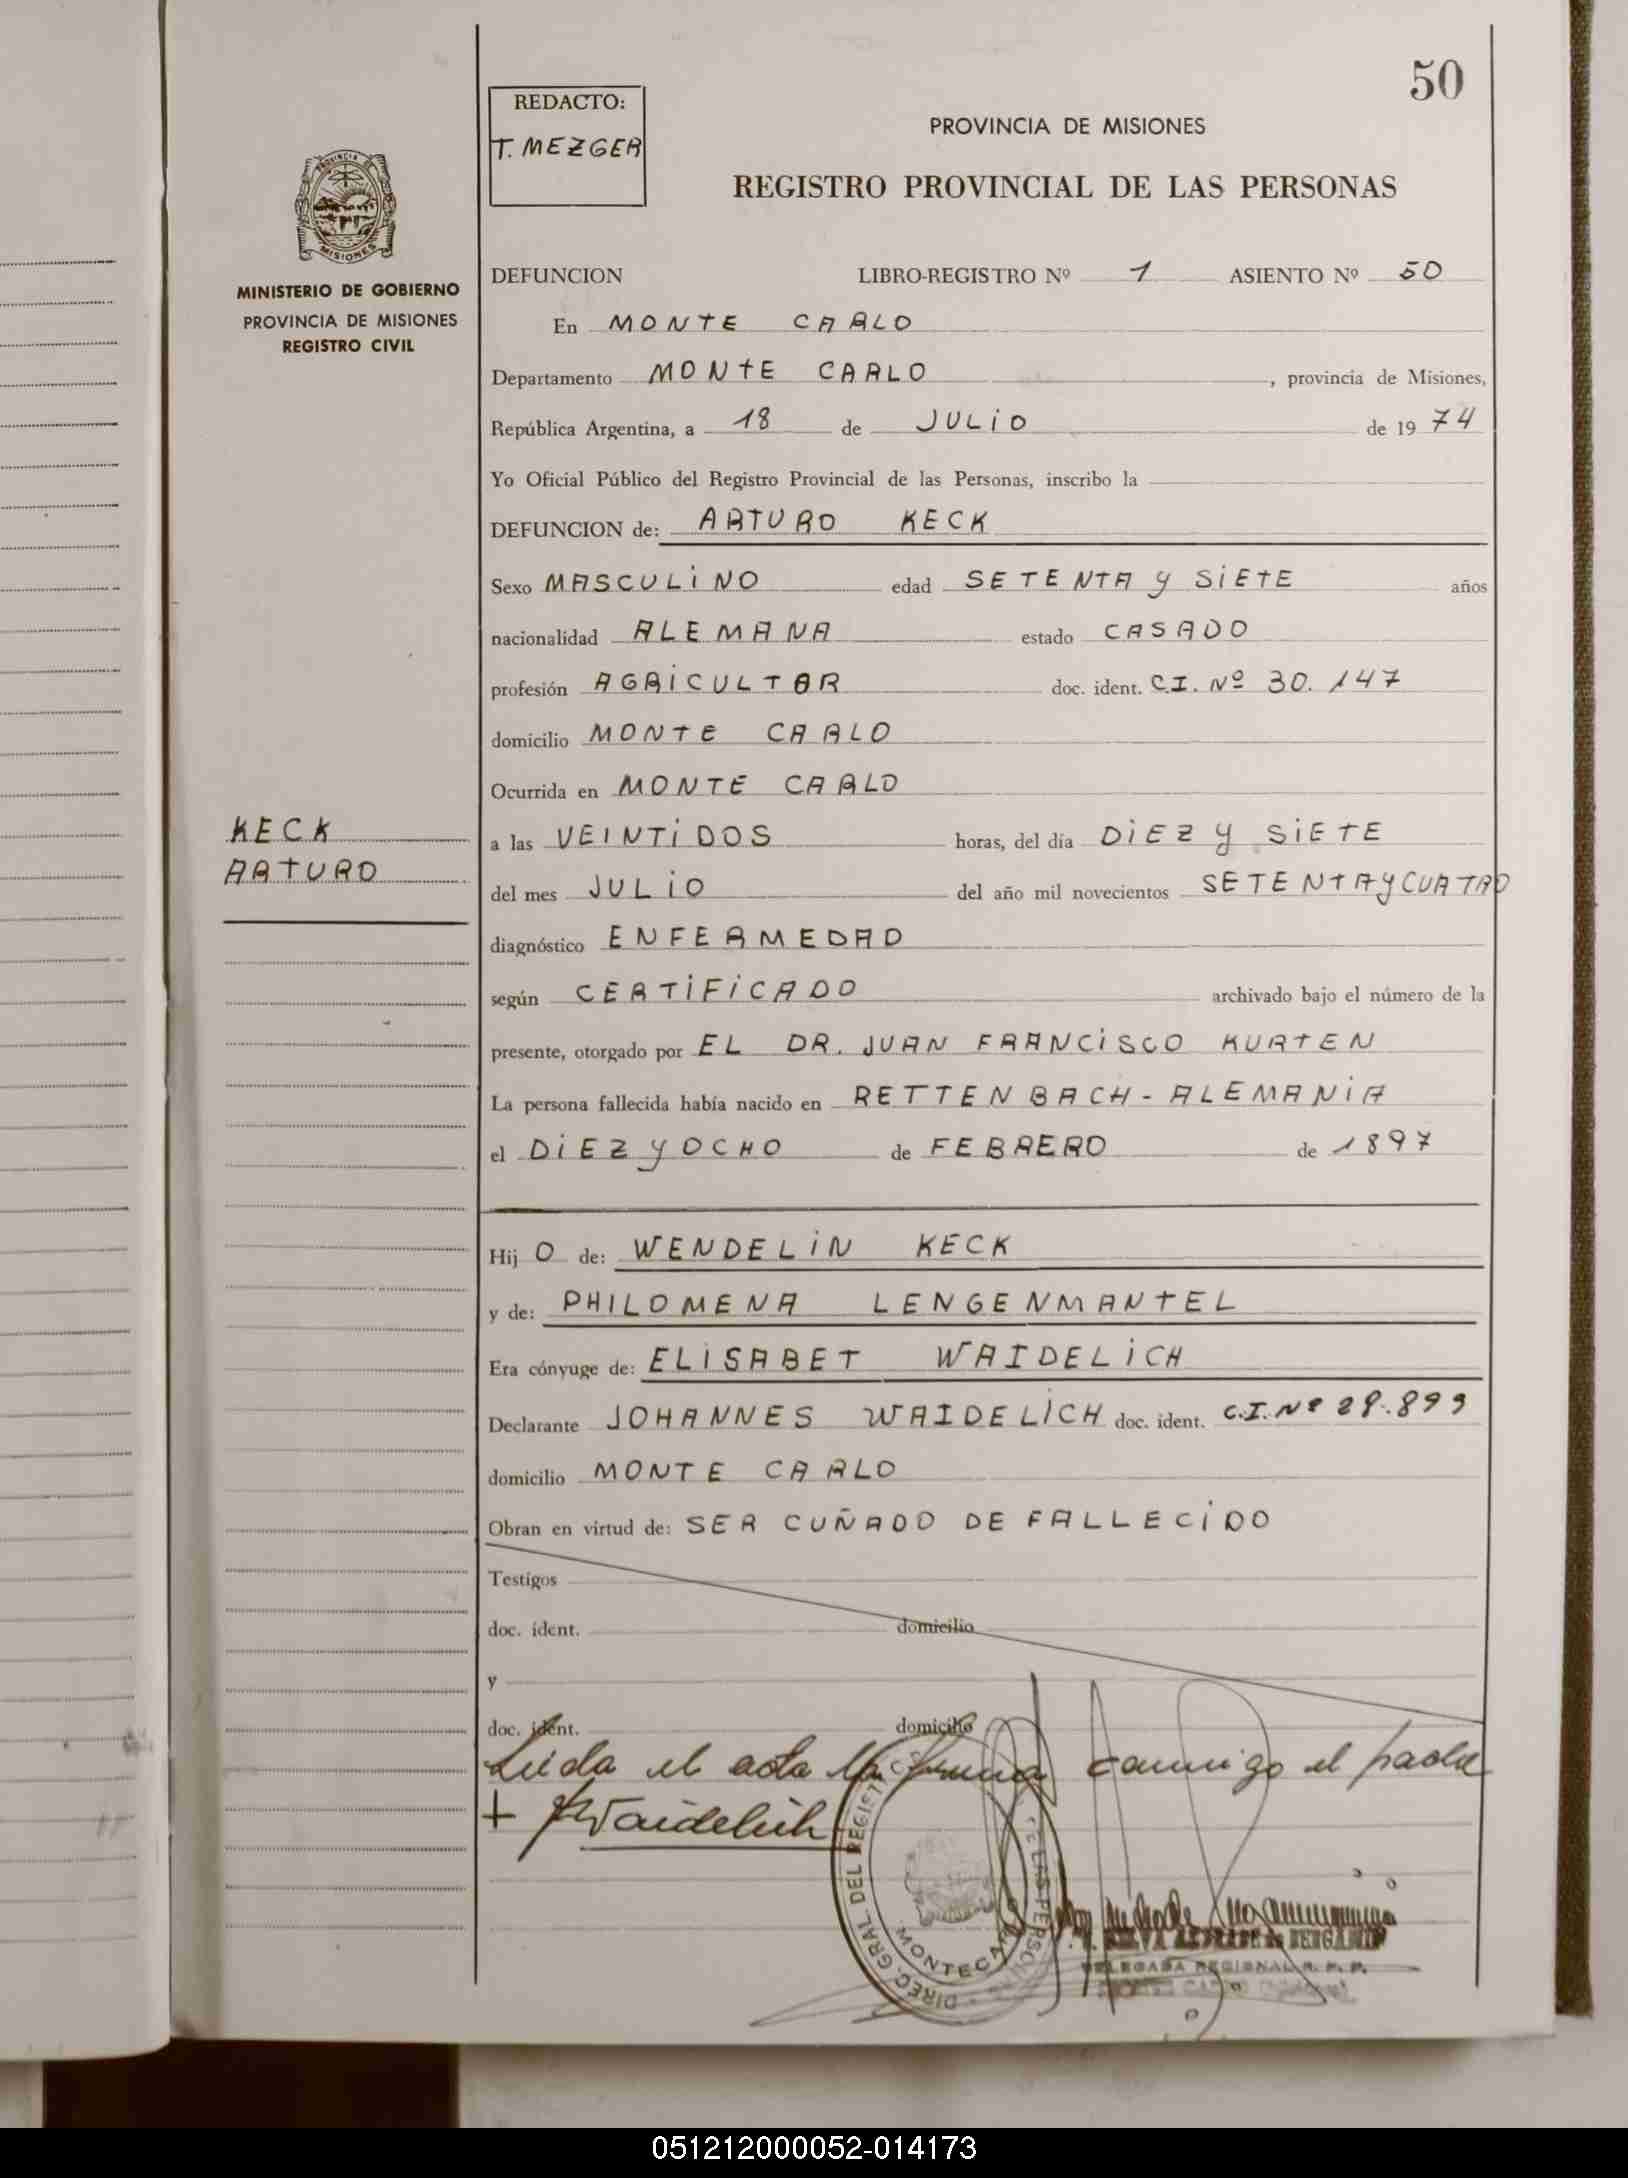 50
REDACTO:
T. MEZGER
PROVINCIA DE MISIONES
REGISTRO PROVINCIAL DE LAS PERSONAS
PROVINCIA DE
MISIONES
MINISTERIO DE GOBIERNO
PROVINCIA DE MISIONES
REGISTRO CIVIL
DEFUNCION LIBRO-REGISTRO Nº 1 ASIENTO Nº 50
En MONTE CARLO
Departamento MONTE CARLO, provincia de Misiones,
República Argentina, a 18 de JULIO de 1974
Yo Oficial Público del Registro Provincial de las Personas, inscribo la
DEFUNCION de: ARTURO KECK
Sexo MASCULINO edad SETENTA y SIETE años
nacionalidad ALEMANA estado CASADO
profesión AGRICULTOR doc. ident. C.I. Nº 30.147
domicilio MONTE CARLO
Ocurrida en MONTE CARLO
KECK
ARTURO
a las VEINTIDOS horas, del día DIEZ y SIETE
del mes JULIO del año mil novecientos SETENTA y CUATRO
diagnóstico ENFERMEDAD
según CERTIFICADO archivado bajo el número de la
presente, otorgado por EL DR. JUAN FRANCISCO KURTEN
La persona fallecida había nacido en RETTENBACH - ALEMANIA
el DIEZ y OCHO de FEBRERO de 1897
Hij O de: WENDELIN KECK
y de: PHILOMENA LENGENMANTEL
Era cónyuge de: ELISABET WAIDELICH
Declarante JOHANNES WAIDELICH doc. ident. C.I. Nº 28.899
domicilio MONTE CARLO
Obran en virtud de: SER CUÑADO DE FALLECIDO
Testigos
doc. ident. domicilio
y
doc. ident. domicilio
Leida el acta la firma conmigo el
+ JWaidelich
DIREC. GRAL. DEL REGIST DE LAS PERSONAS
MONTECARLO
DE BERGAMIN
DELEGADA REGIONAL R. P. P.
051212000052-014173